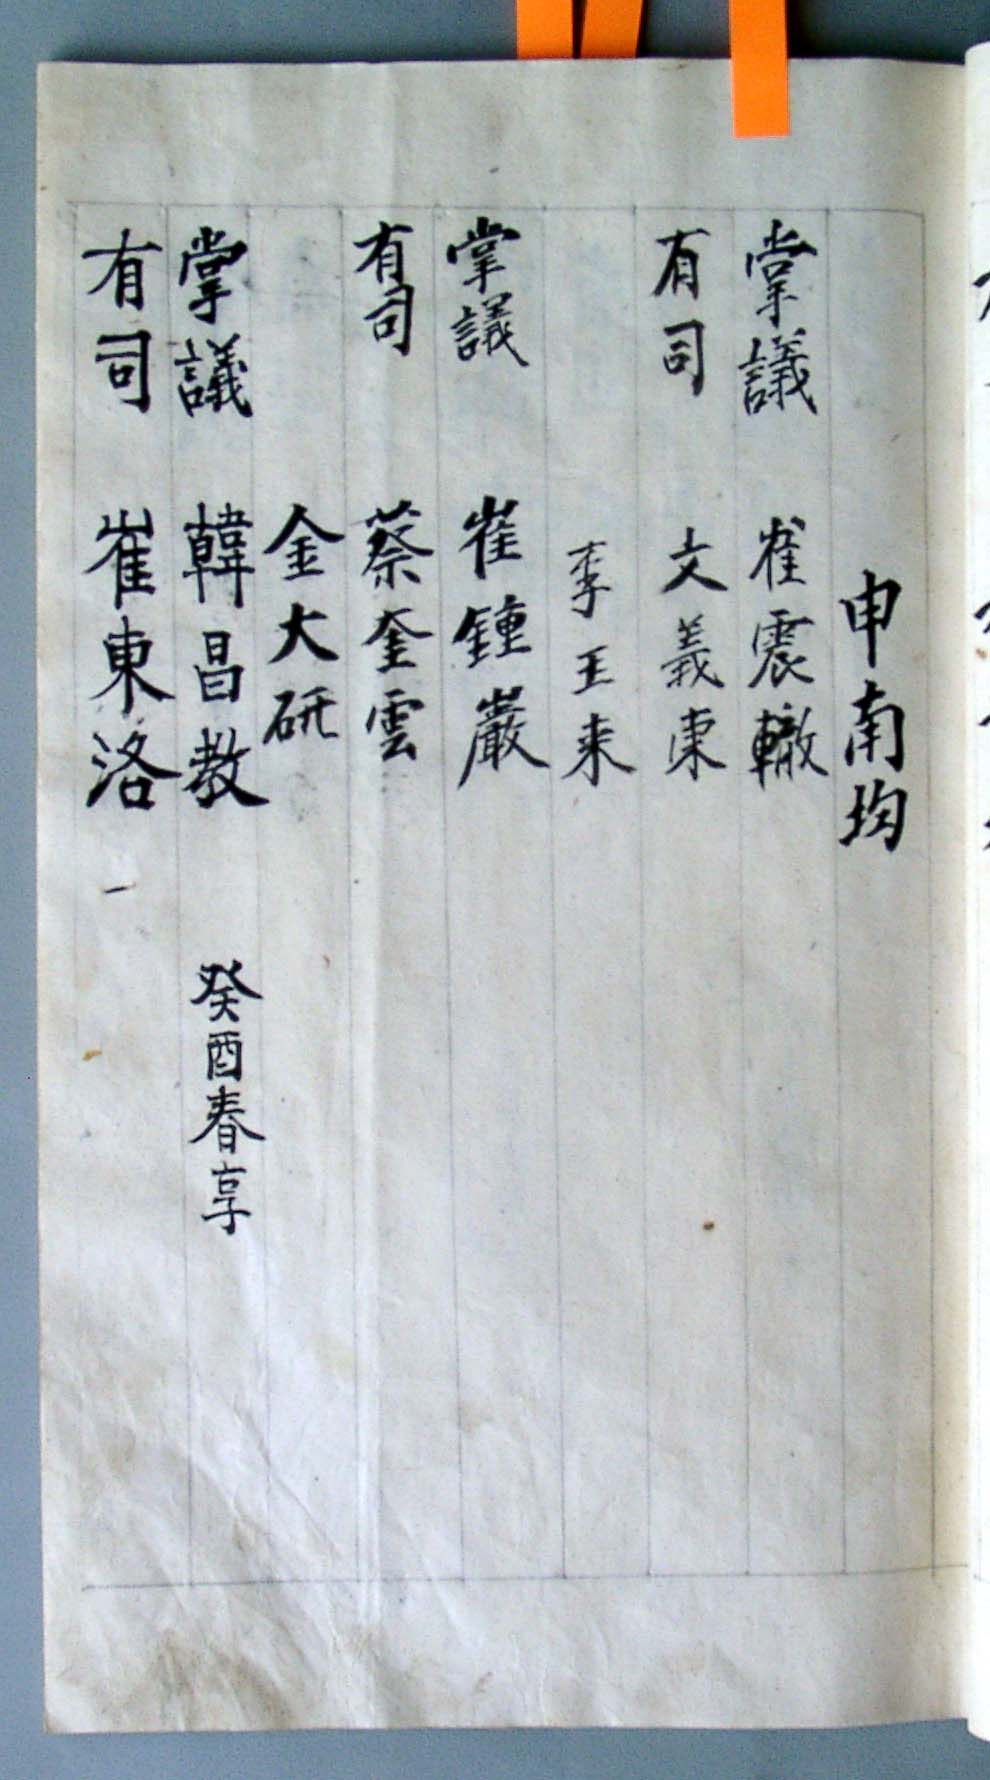 申南均
掌議 崔震轍
有司 文義東
李王来
掌議 崔鍾巖
有司 蔡奎雲
金大研
掌議 韓昌教 癸酉春享
有司 崔東洛